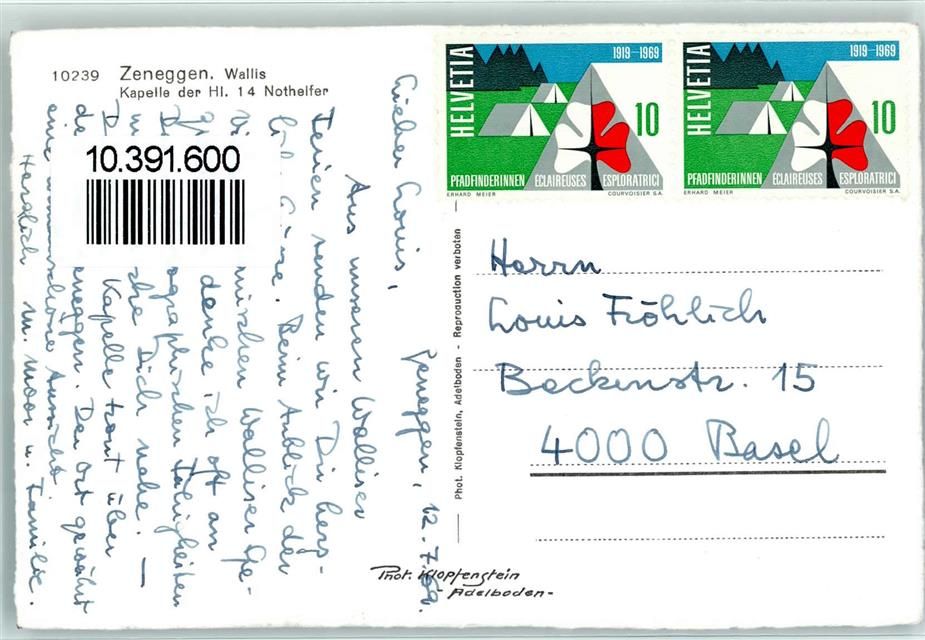 10239 Zeneggen, Wallis
Kapelle der Hl. 14 Nothelfer
10.391.600
HELVETIA
1919–1969
10
PFADFINDERINNEN ÉCLAIREUSES ESPLORATRICI
ERHARD MEIER COURVOISIER S.A.
HELVETIA
1919–1969
10
PFADFINDERINNEN ÉCLAIREUSES ESPLORATRICI
ERHARD MEIER COURVOISIER S.A.
Zeneggen, 12.7.69.
Lieber Louis,
Aus unseren Walliser
Ferien senden wir Dir herz-
Beim Anblick der
Walliser Ge-
denke ich oft an
ographischen Fähigkeiten
Dich nahe. —
Kapelle tront über
eneggen. Der Ort gewährt
eine schöne Aussicht.
Herzlich M. Moor u. Familie.
Phot. Klopfenstein, Adelboden - Reproduction verboten
Herrn
Louis Fröhlich
Beckenstr. 15
4000 Basel
Phot. Klopfenstein
- Adelboden -